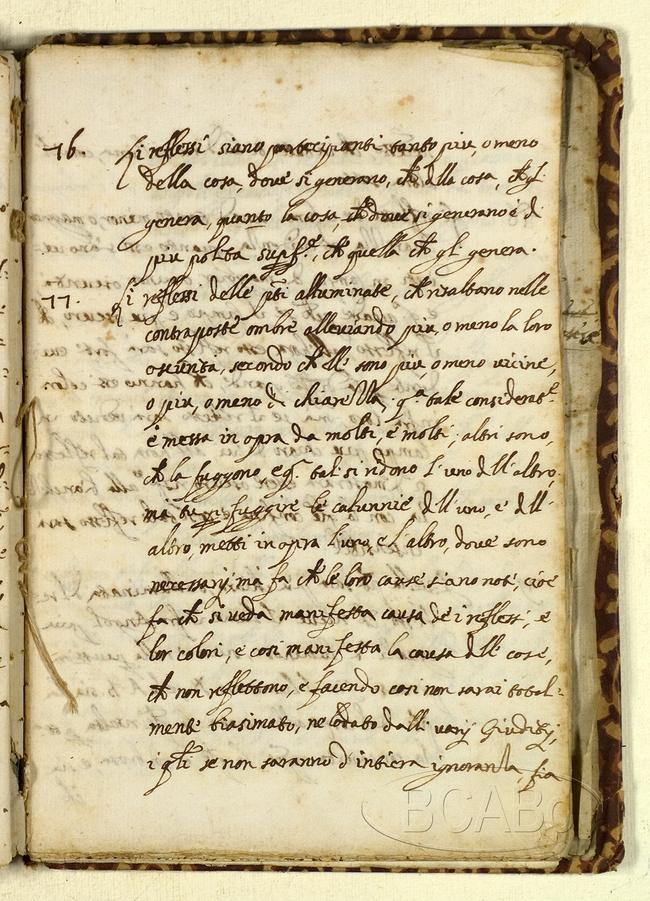 76. Li reflessi siano partecipanti tanto piu, o meno
della cosa, dove si generano, ch dlla cosa, ch gl
genera, quanto la cosa, ch dove si generano è di
piu polita supf.e, ch quella ch gl genera.
77. Li reflessi delle pti alluminate, ch risaltano nelle
contraposte ombre alleviando piu, o meno la loro
oscurita, secondo ch elle sono piu, o meno vicine,
o piu, o meno di chiarezza; q.a tale considerat.e
è messa in opra da molti, e molti altri sono,
ch la fuggono e q. tali si ridono l'uno dll'altro,
ma tu p fuggire le calunnie dll'uno, e dll'
altro, metti in opra l'uno, e l'altro, dove sono
necessarij, ma fa ch le loro cause siano note, cioe
fa ch si veda manifesta causa de i reflessi, e
lor colori, e cosi manifesta la causa dlle cose,
ch non reflettono, e facendo cosi non sarai total-
mente biasimato, ne lodato dalli varij Giuditij,
i qli se non saranno d'intiera ignoranza, fia
BCABo